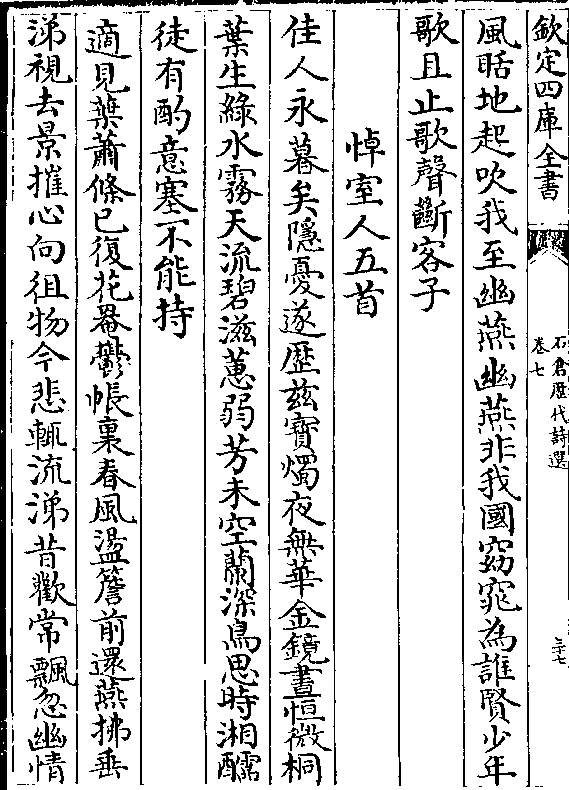 欽定四庫全書
石倉歷代詩選
卷七
三十七
風聒地起吹我至幽燕幽燕非我國窈窕為誰賢少年
歌且止歌聲斷客子
悼室人五首
佳人永暮矣隱憂遂歷兹寳燭夜無華金鏡晝恒微桐
葉生緑水霧天流碧滋蕙弱芳未空蘭深鳥思時湘醽
徒有酌意塞不能持
適見葉蕭條已復花晻鬱帳裏春風盪簷前還燕拂垂
涕視去景摧心向徂物今悲輒流涕昔歡常飄忽幽情